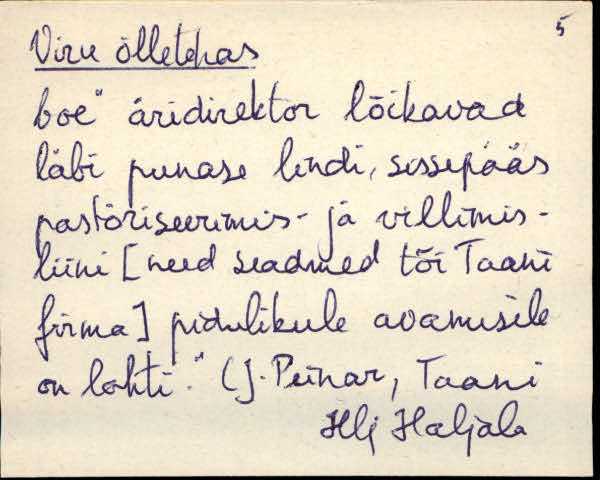 5
Viru õlletehas
boe" äridirektor lõikavad
läbi punase lindi, sissepääs
pastöriseerimis- ja villimis-
liini [need seadmed tõi Taani
firma] pidulikule avamisele
on lahti." (J. Peinar, Taani
Hlj Haljala